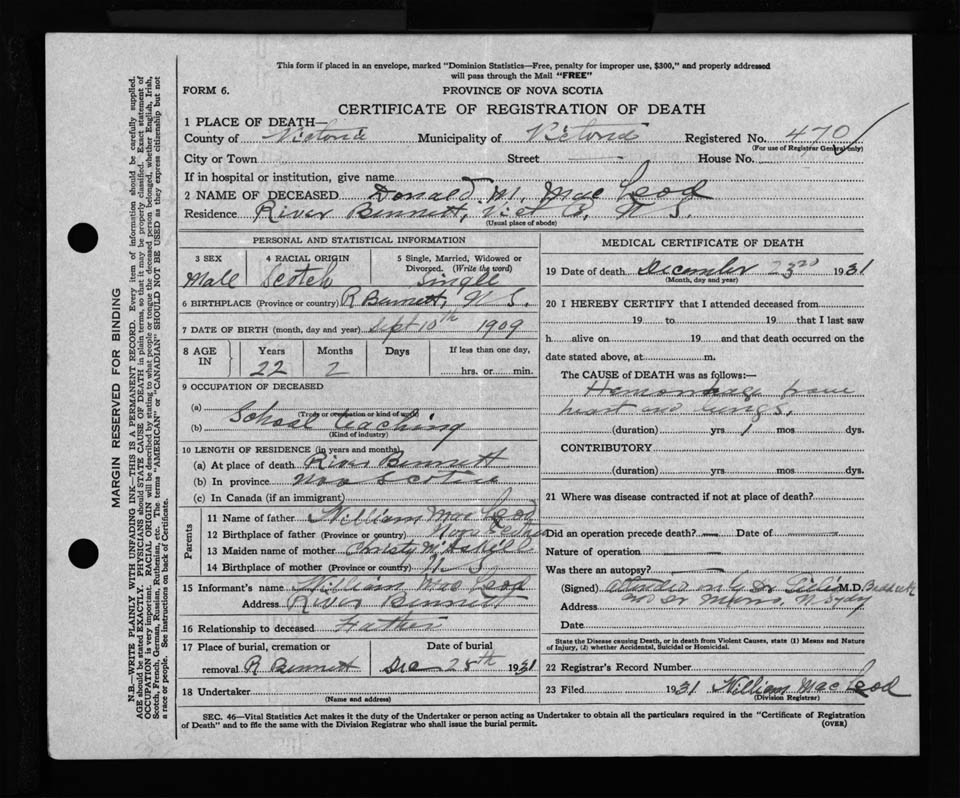 This form if placed in an envelope, marked "Dominion Statistics—Free, penalty for improper use, $300," and properly addressed
will pass through the Mail "FREE"
FORM 6.
PROVINCE OF NOVA SCOTIA
CERTIFICATE OF REGISTRATION OF DEATH
1 PLACE OF DEATH—
County of Victoria Municipality of Victoria Registered No. 470
(For use of Registrar General only)
City or Town Street — House No.
If in hospital or institution, give name
2 NAME OF DECEASED Donald M. Mac Leod
Residence River Bennett, Vict Co, N S.
(Usual place of abode)
PERSONAL AND STATISTICAL INFORMATION
3 SEX 4 RACIAL ORIGIN 5 Single, Married, Widowed or
Divorced. (Write the word)
Male Scotch Single
6 BIRTHPLACE (Province or country) R Bennett, N S.
7 DATE OF BIRTH (month, day and year) Sept 10th 1909
8 AGE IN Years Months Days If less than one day,
22 2 hrs. or min.
9 OCCUPATION OF DECEASED
(a)
(Trade or occupation or kind of work)
(b) School teaching
(Kind of industry)
10 LENGTH OF RESIDENCE (in years and months)
(a) At place of death River Bennett
(b) In province Nova Scotia
(c) In Canada (if an immigrant)
Parents
11 Name of father William Mac Leod
12 Birthplace of father (Province or country) Nova Scotia
13 Maiden name of mother Christy McAskill
14 Birthplace of mother (Province or country) N. S.
15 Informant's name William Mac Leod
Address River Bennett
16 Relationship to deceased Father
17 Place of burial, cremation or Date of burial
removal R Bennett Dec 28th 1931
18 Undertaker
(Name and address)
MEDICAL CERTIFICATE OF DEATH
19 Date of death December 23rd 1931
(Month, day and year)
20 I HEREBY CERTIFY that I attended deceased from
19 to 19 that I last saw
h alive on 19 and that death occurred on the
date stated above, at m.
The CAUSE of DEATH was as follows:—
Hemorrhage from
heart and lungs.
(duration) yrs 1 mos dys.
CONTRIBUTORY
(duration) yrs mos dys.
21 Where was disease contracted if not at place of death?
Did an operation precede death? — Date of —
Nature of operation —
Was there an autopsy? —
(Signed) attended only Dr M.D. Baddeck
Address and Dr N Sydy
Date
State the Disease causing Death, or in death from Violent Causes, state (1) Means and Nature
of Injury, (2) whether Accidental, Suicidal or Homicidal.
22 Registrar's Record Number
23 Filed 1931 William Mac Leod
(Division Registrar)
SEC. 46—Vital Statistics Act makes it the duty of the Undertaker or person acting as Undertaker to obtain all the particulars required in the "Certificate of Registration
of Death" and to file the same with the Division Registrar who shall issue the burial permit. (OVER)
MARGIN RESERVED FOR BINDING
N.B.—WRITE PLAINLY WITH UNFADING INK—THIS IS A PERMANENT RECORD. Every item of information should be carefully supplied.
AGE should be stated EXACTLY. PHYSICIANS should STATE CAUSE OF DEATH in plain terms, so that it may be properly classified. Exact statement of
OCCUPATION is very important. RACIAL ORIGIN will be described by stating to what people or tongue the deceased person belonged, whether English, Irish,
Scotch, French, German, Russian, Ruthenian, etc. The terms "AMERICAN" or "CANADIAN" SHOULD NOT BE USED as they express citizenship but not
a race or people. See instructions on back of Certificate.